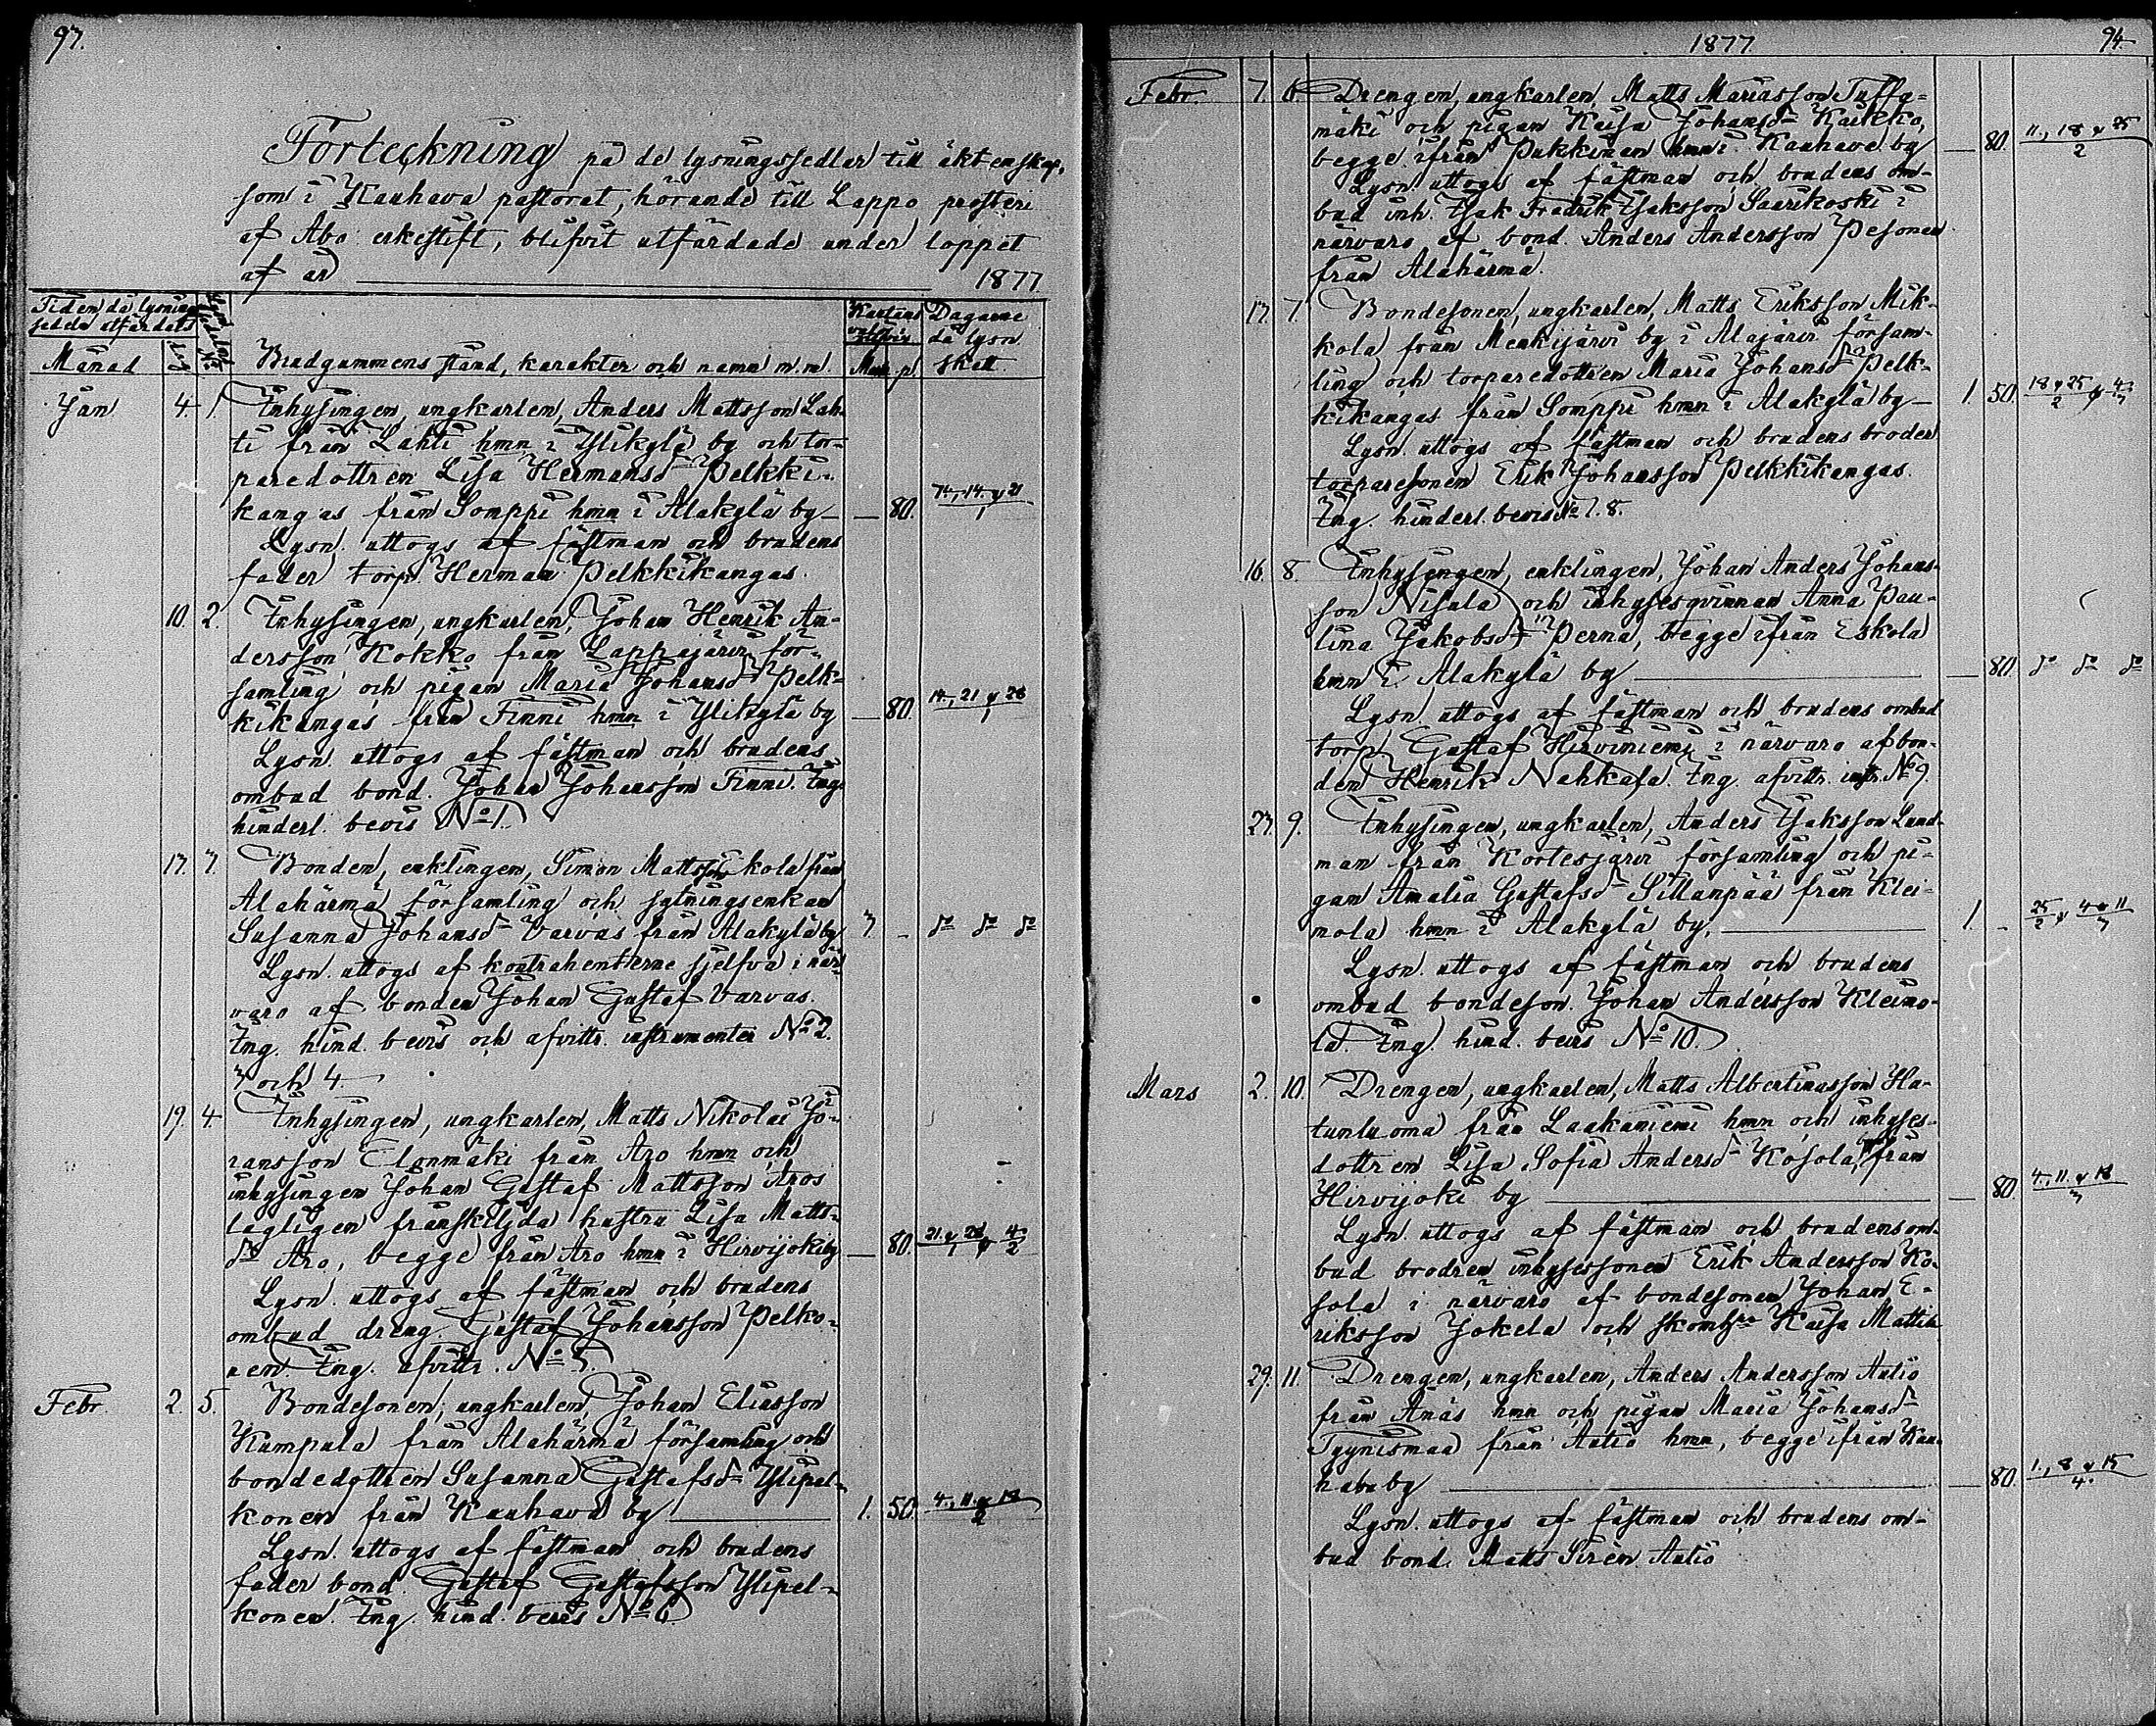 97.
Förteckning på de lysningssedlar till äktenskap,
som i Kauhava pastorat, hörande till Lappo prosteri
af Åbo erkestift, blifvit utfärdade under loppet
af år 1877
Tiden då lysnings
sedeln utfärdats
Dagarne
då lysn.
skett.
Månad
Brudgummens stånd, karakter och namn m.m.
Mark p.
Jan 4. 1. Inhysingen, ungkarlen, Anders Mattsson Lah-
ti från Lahti hmn i Ylikylä by och tor-
paredottren Lisa Hermansd:r Pelkki-
kangas från Somppi hmn i Alakylä by — 80. 7., 14. & 21/1
Lysn. uttogs af fästman och brudens
fader torp. Herman Pelkkikangas.
10. 2. Inhysingen, ungkarlen, Johan Henrik An-
dersson Kokko från Lappajärvi för-
samling och pigan Maria Johansd:r Pelk-
kikangas från Finni hmn i Ylikylä by — 80. 14., 21 & 28/1
Lysn. uttogs af fästman och brudens
ombud bond. Johan Johansson Finni. Ing.
hinderl. bevis No 1.
17. 3. Bonden, enklingen, Simon Mattsson Ekola från
Alahärmä församling och sytningsenkan
Susanna Johansd:r Varvas från Alakylä by 3. - d:o d:o d:o
Lysn. uttogs af kontrahenterne sjelfva i när-
varo af bonden Johan Gustaf Varvas.
Ing. hind. bevis och afvittr. instrumenter No 2.
3 och 4.
19. 4. Inhysingen, ungkarlen, Matts Nikolai Jö-
ransson Elonmäki från Aro hmn och
inhysingen Johan Gustaf Mattsson Aros
lagligen frånskiljda hustru Lisa Matts-
d:r Aro, begge från Aro hmn i Hirvijoki by — 80. 21. & 28/1 & 4/2
Lysn. uttogs af fästman och brudens
ombud dreng. Gustaf Johansson Pelko-
nen. Ing. afvittr. No 5.
Febr. 2. 5. Bondesonen, ungkarlen, Johan Eliasson
Kumpula från Alahärmä församling och
bondedottren Susanna Gustafsd:r Ylipel-
konen från Kauhava by 1. 50. 4., 11. & 18/2
Lysn. uttogs af fästman och brudens
fader bond. Gustaf Gustafsson Ylipel-
konen. Ing. hind. bevis No 6
1877 94
Febr. 7. 6. Drengen, ungkarlen, Matts Mariasson
mäki och pigan Kaisa Johansd:r Kaikko,
begge ifrån Pukkinen hmn i Kauhava by — 80. 11., 18 & 25/2
Lysn. uttogs af fästman och brudens om-
bud inh. Isak Fredrik Isaksson Saarikoski i
närvaro af bond. Anders Andersson Pesonen
från Alahärmä.
17. 7. Bondesonen, ungkarlen, Matts Eriksson Mik-
kola från Menkijärvi by i Alajärvi försam-
ling och torparedottren Maria Johansd:r Pelk-
kikangas från Somppi hmn i Alakylä by — 1. 50. 18 & 25/2 & 4/3
Lysn. uttogs af fästman och brudens broder
torparesonen Erik Johansson Pelkkikangas.
Ing. hinderl. bevis No 7. 8.
16. 8. Inhysingen, enklingen, Johan Anders Johans-
son Nisula och inhysesqvinnan Anna Pau-
lina Jakobsd:r Perna, begge ifrån Eskola
hmn i Alakylä by — 80. d:o d:o d:o
Lysn. uttogs af fästman och brudens ombud
torp. Gustaf Hirviniemi i närvaro af bon-
den Henrik Nahkala. Ing. afvittr. instr. No 9.
23. 9. Inhysingen, ungkarlen, Anders Isaksson Lund-
man från Kortesjärvi församling och pi-
gan Amalia Gustafsd:r Sillanpää från Klei-
mola hmn i Alakylä by, 1. - 25/2 & 4 & 11/3
Lysn. uttogs af fästman och brudens
ombud bondeson. Johan Andersson Kleimo-
la. Ing. hind. bevis No 10.
Mars 2. 10. Drengen, ungkarlen, Matts Albertinasson Ha-
tunluoma från Laakaniemi hmn och inhyses-
dottren Lisa Sofia Andersd:r Kosola, från
Hirvijoki by — 80. 4., 11. & 18/3
Lysn. uttogs af fästman och brudens om-
bud brodren inhysessonen Erik Andersson Ko-
sola i närvaro af bondesonen Johan E-
riksson Jokela och Kaisa Mattila
29. 11. Drengen, ungkarlen, Anders Andersson Autio
från Änäs hmn och pigan Maria Johansd:r
Tyynismaa från Autio hmn, begge ifrån Kau-
hava by — 80. 1., 8 & 15/4.
Lysn. uttogs af fästman och brudens om-
bud bond. Matts Sirén Autio